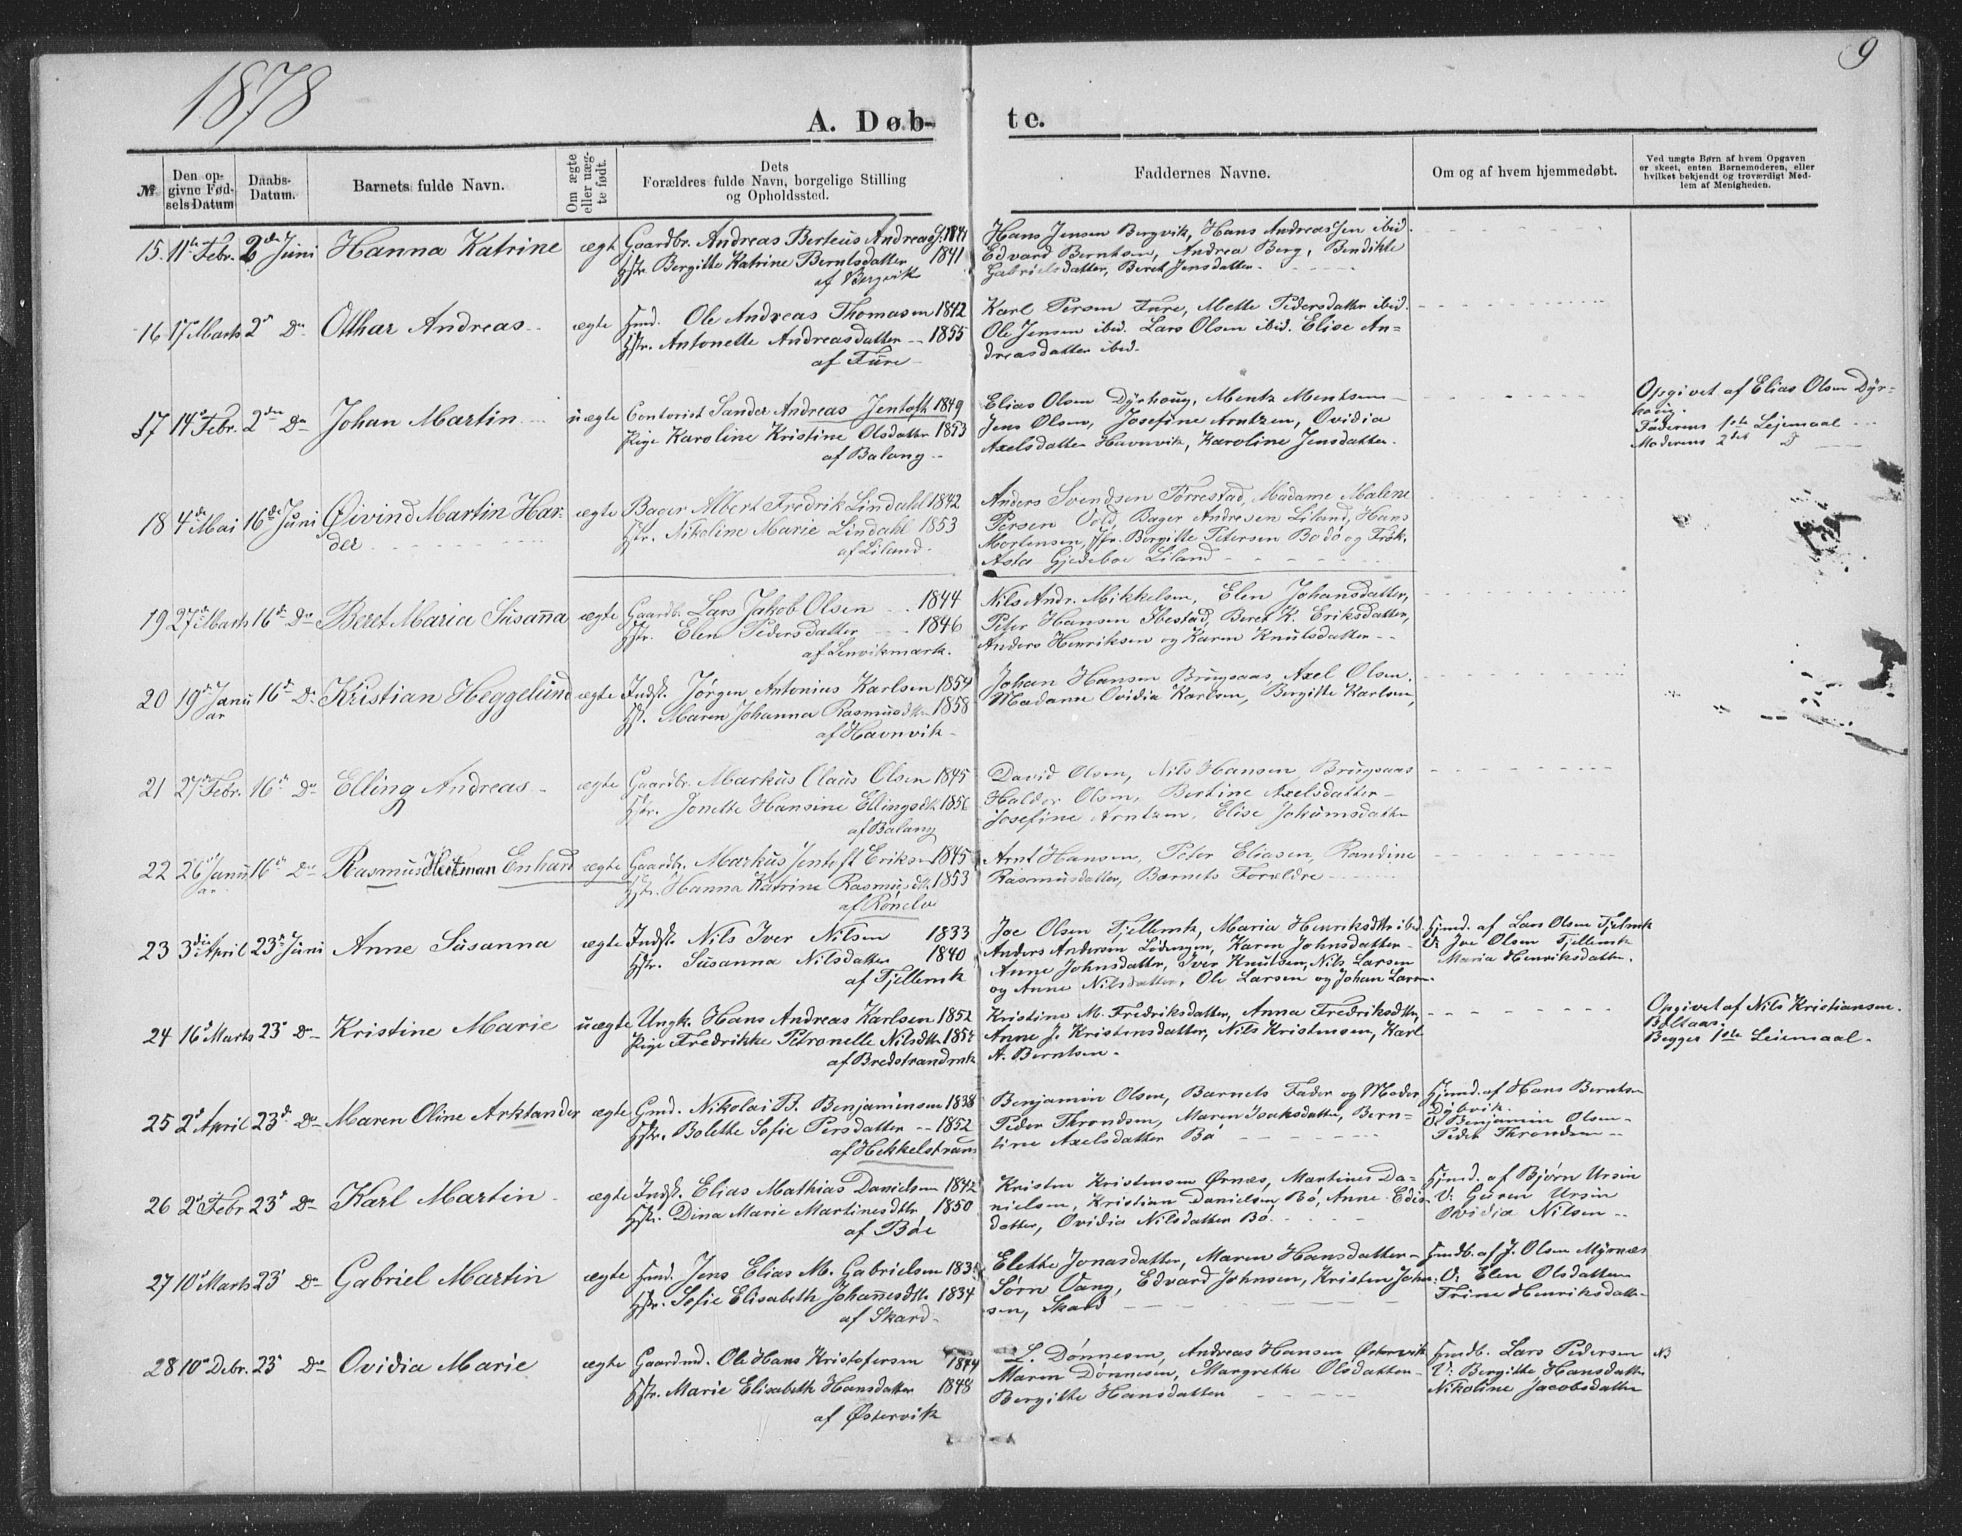 1878
9
A. Døb-
te.
№
Den op-
givne Fød-
selsDatum
Daabs-
Datum.
Barnets fulde Navn.
Om ægte
eller uæg-
te født.
Dets
Forældres fulde Navn, borgelige Stilling
og Opholdssted.
Faddernes Navne.
Om og af hvem hjemmedøbt.
Ved uægte Børn af hvem Opgaven
er skeet, enten Barnemoderen, eller
hvilket bekjendt og troværdigt Med-
lem af Menigheden.
15. 11te Febr. 2den Juni Hanna Katrine ægte
Gaardbr. Andreas Berteus Andreas 1841
Hstr. Bergitte Katrine Berntsdatter 1841
af Bergvik
Hans Jensen Bergvik, Hans Andreassen ibid.
Edvard Berntsen, Andrea Berg, Bendikte
Gabrielsdatter, Beret Jensdatter.
16 17de Marts 2den Do Otthar Andreas ægte
Hmd. Ole Andreas Thomasen 1842
Hstr. Antonette Andreasdatter 1855
af Fure
Karl Persen Fure, Mette Pedersdatter ibid.
Ole Jensen ibid. Lars Olsen ibid. Elise An=
dreasdatter ibid.
17 14de Febr. 2den Do Johan Martin uægte
Contorist Sander Andreas Jentoft 1849
Pige Karoline Kristine Olsdatter 1853
af Balang
Elias Olsen Dyrhaug, Mentz Mentsen
Jens Olsen, Josefine Arntzen, Ovidia
Axelsdatter Havnvik, Karoline Jensdatter.
Opgivet af Elias Olsen Dyr=
haug.
Faderens 1ste Lejemaal
Moderens 2det D
18 4de Mai 16de Juni Øivind Martin Har-
der ægte
Bager Albert Fredrik Lindahl 1842
Hstr. Nikoline Marie Lindahl 1853
af Liland.
Anders Svendsen Forrestad, Madame Malene
Persen Vold, Bager Andresen Liland, Hans
Mortensen, Jfr. Bergitte Petersen Bodø og Frøk.
Asta Gjedeboe Liland
19 27de Marts 16de Do Beret Maria Susanna ægte
Gaardbr. Lars Jakob Olsen 1844
Hstr. Elen Pedersdatter 1846
af Lenvikmark.
Nils Andr. Mikkelsen, Elen Johansdatter,
Peter Hansen Ibestad, Beret K. Eriksdatter,
Anders Henriksen og Karen Knutsdatter
20 19de Janu
ar 16de Do Kristian Heggelund ægte
Indst. Jørgen Antonius Karlsen 1854
Hst. Maren Johanna Rasmusdtr 1858
af Havnvik
Johan Hansen Brugsaas, Axel Olsen.
Madame Ovidia Karlsen, Bergitte Karlsen,
21 27de Febr. 16de Do Elling Andreas ægte
Gaardbr. Markus Claus Olsen 1845
Hstr. Jonette Hansine Ellingsdtr 1856
af Balang
David Olsen, Nils Hansen Brugsaas
Haldor Olsen, Bertine Axelsdatter
Josefine Arntzen, Elise Johansdatter
22 26de Janu
ar 16de Do Rasmus Heitman Enhard ægte
Gaardbr. Markus Jentoft Eriksen 1845
Hstr. Hanna Katrine Rasmusdtr 1853
af Rønelv
Arnt Hansen, Peter Eliasen, Randine
Rasmusdatter, Barnets Forældre
23 3die April 23de Juni Anne Susanna ægte
Indst. Nils Iver Nilsen 1833
Hstr. Susanna Nilsdatter 1840
af Fjellemrk
Joe Olsen Fjellemrk, Maria Henriksdtr ibid
Anders Andersen Lødengen, Karen Johnsdatter
Anne Johnsdatter, Iver Knutsen, Nils Larsen
og Anne Nilsdatter, Ole Larsen og Johan Larsen
Hjmd. af Lars Olsen Fjelmrk
V. Joe Olsen Fjellemrk
Maria Henriksdatter.
24 16de Marts 23de Do Kristine Marie uægte
Ungk. Hans Andreas Karlsen 1852
Pige Fredrikke Petronelle Nilsdtr
af Bredstrandmk
Kristine M. Fredriksdatter, Anna Fredriksdtr,
Anne J. Kristensdatter, Nils Kristensen, Karl
A. Berntsen.
Opgivet af Nils Kristiansen
Boltaas.
Begges 1ste Leiemaal.
25 2den April 23de Do Maren Oline Arktander ægte
Gmd. Nikolai B. Benjaminsen 1838
Hstr. Bolette Sofie Persdatter 1852
af Hekkelstrand
Benjamin Olsen, Barnets Fader og Moder
Peder Throndsen, Maren Isaksdatter, Bern=
tine Axelsdatter Bø
Hjmd. af Hans Berntsen
Dybvik.
V. Benjamin Olsen
Peder Throndsen
26 2den Febr 23de Do Karl Martin ægte
Indst. Elias Mathias Danielsen 1842
Hstr. Dina Marie Martinesdtr 1850
af Bøe
Kristen Kristensen Ørnæs, Martines Da-
nielsen, Kristian Danielsen Bø, Anne Edis
datter, Ovidia Nilsdatter Bø.
Hjmd. af Bjørn Ursin
V: Guren Ursin
Ovidia Nilsen
27 10de Marts 23de Do Gabriel Martin ægte
Hmd. Jens Elias M. Gabrielsen
Hstr. Sofie Elisabeth Johannesdtr 1834
af Skard
Elette Jonasdatter, Maren Hansdatter
Sørn Vang, Edvard Johnsen, Kristen John-
sen, Skard
Hmdb. af J. Olsen Myrnes
V: Elen Olsdatter
Trine Henriksdatter
28 10de Debr. 23de Do Ovidia Marie ægte
Gaardmd. Ole Hans Kristofersen 1844
Hstr. Marie Elisabeth Hansdatter 1848
af Østervik
L. Dønnesen, Andreas Hansen Østervik
Maren Dønnesen, Margrethe Olsdatter
Bergitte Hansdatter
Hmdb. Lars Pedersen
V: Bergitte Hansdatter
Nikoline Jacobsdatter